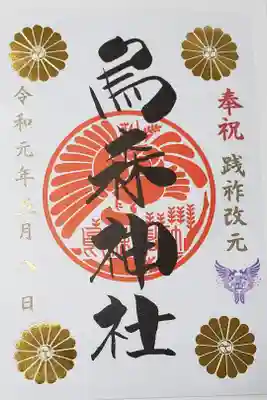 奉祝 践祚改元
烏森神社
令和元年五月八日